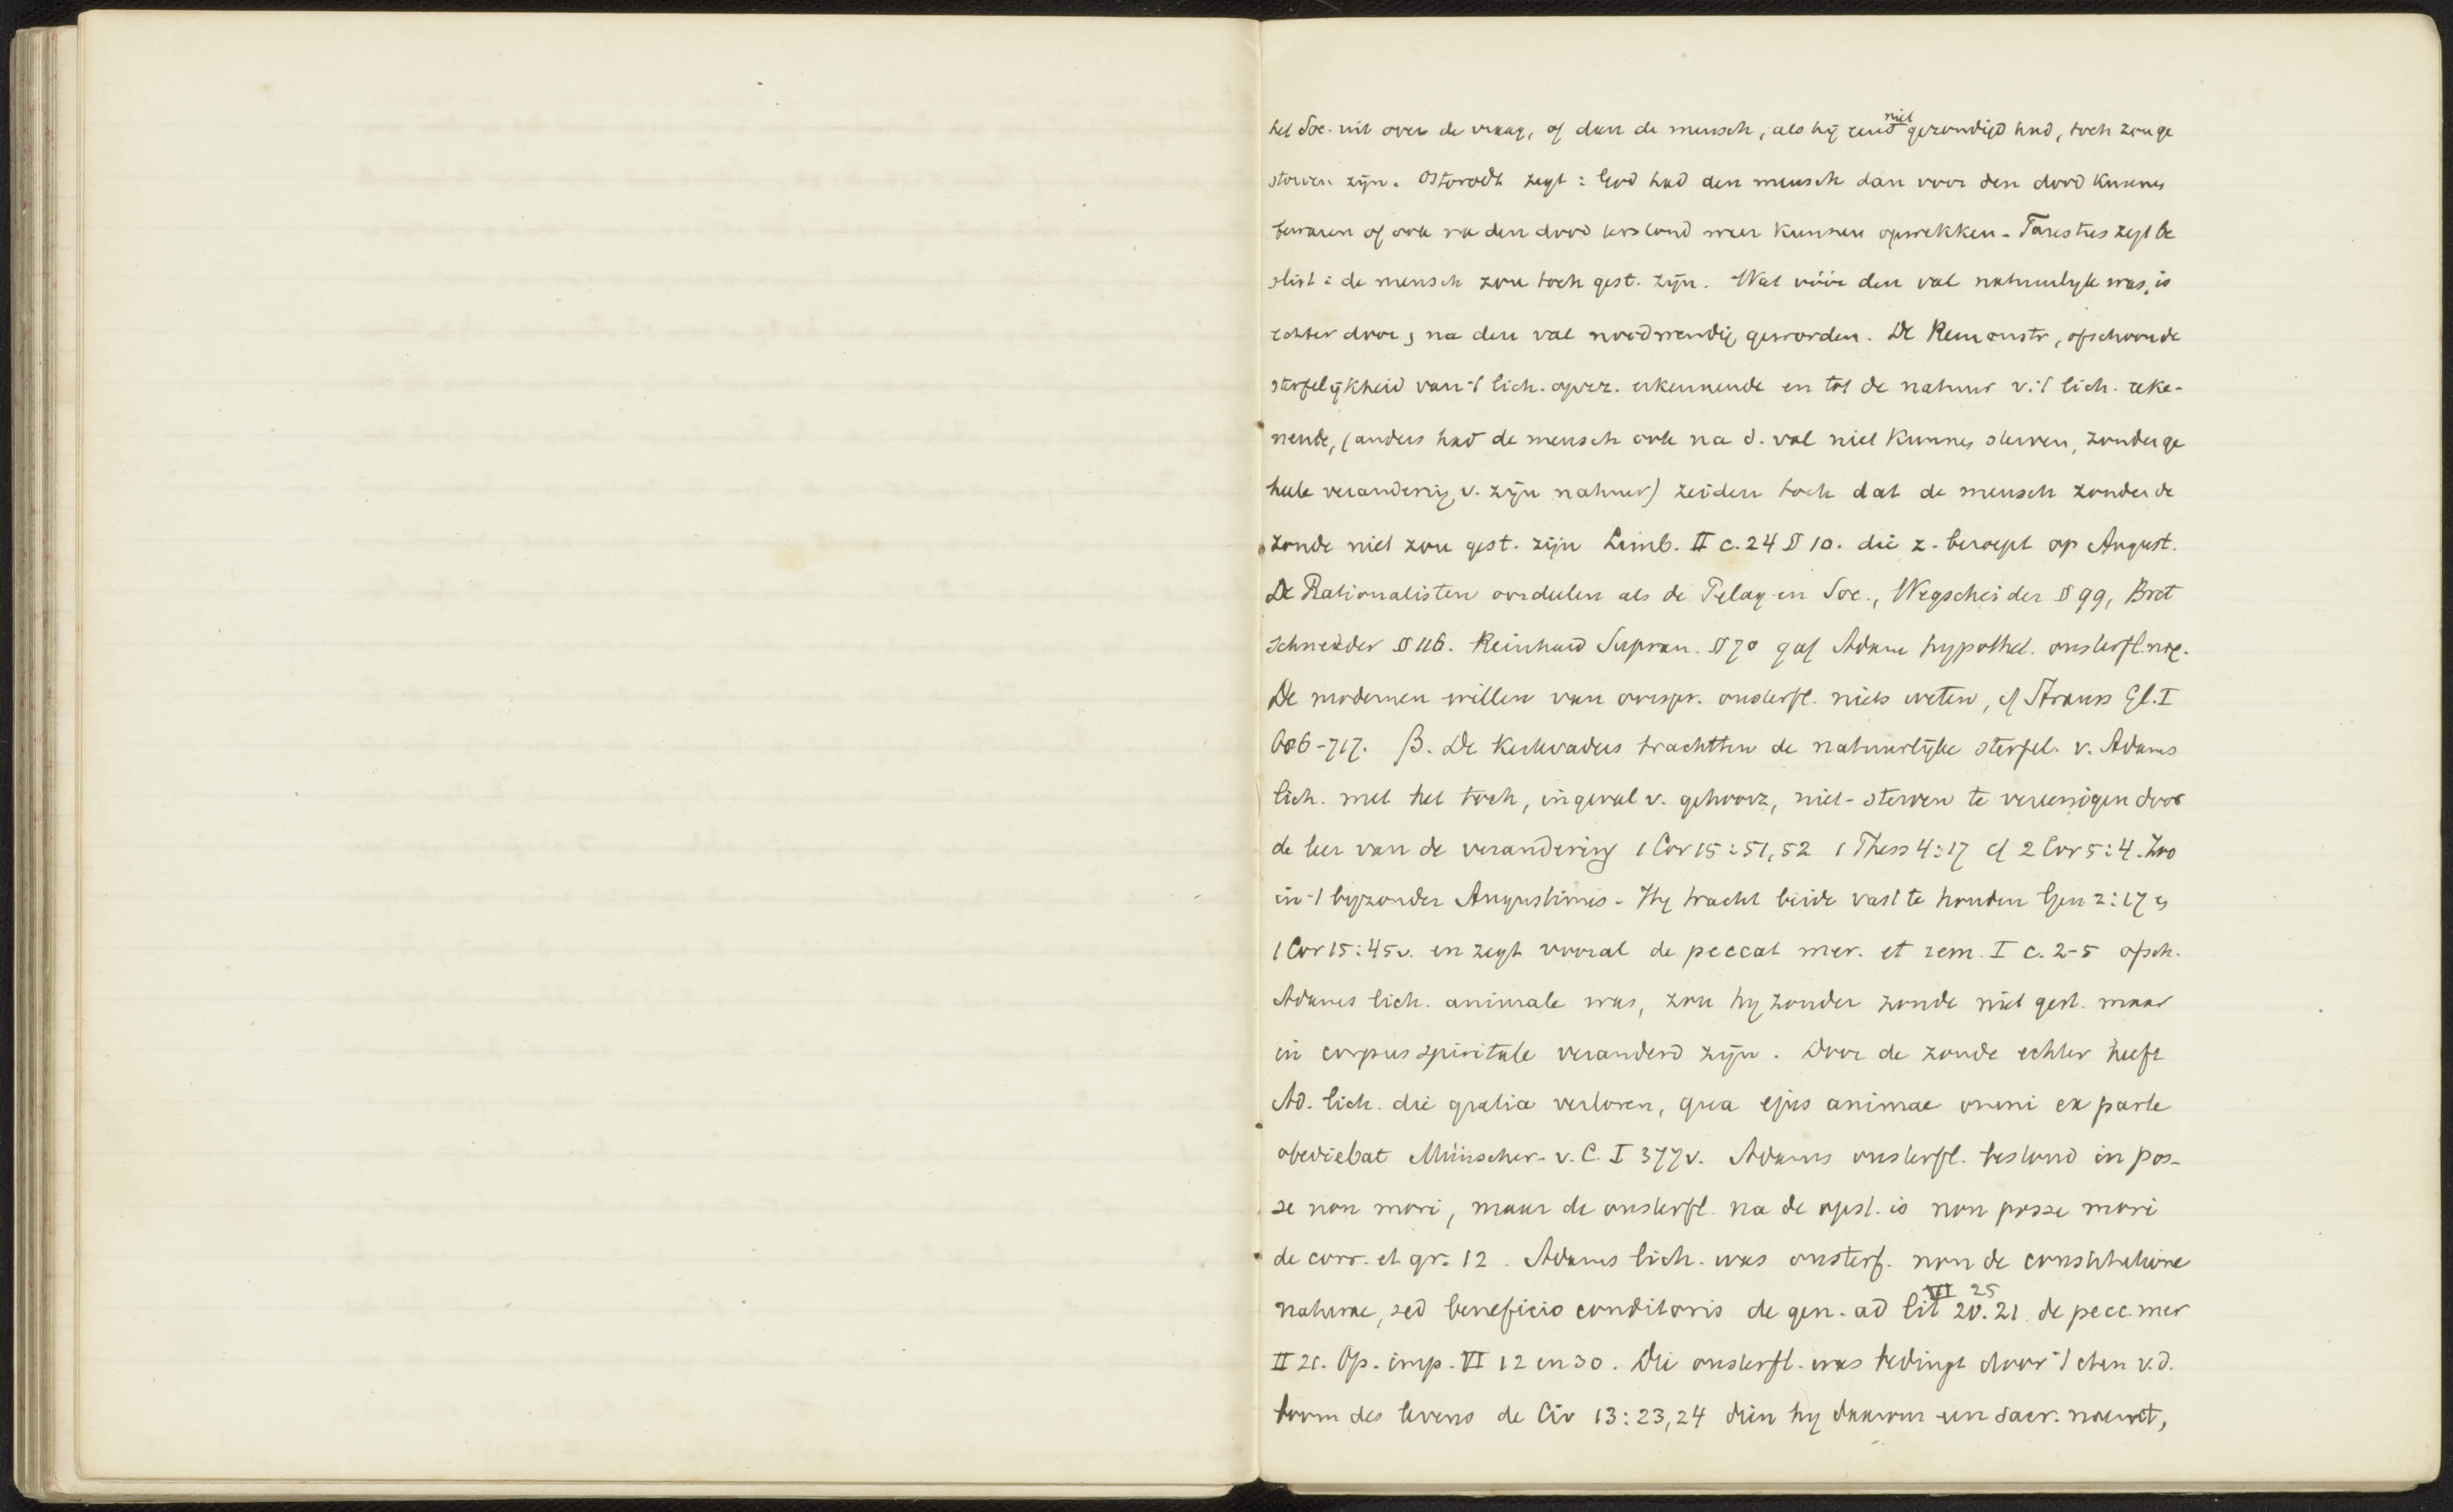 het Soc. uit over de vraag, of dan de mensch, als hij eens niet gezondigd had, toch zou ge
storven zijn. Ostorodt zegt: God had den mensch dan voor den dood kunnen
bewaren of ook na den dood terstond weer kunnen opwekken - Faustus zegt be
slist: de mensch zou toch gest. zijn. Wat vóór den val natuurlyk was, is
echter door, na den val noodwendig geworden. De Remonstr, ofschoon de
sterfelijkheid van 't lich. opz. erkennende en tot de natuur v. 't lich. reke-
nende, (anders had de mensch ook na d. val niet kunnen sterven, zonder ge
heele verandering v. zijn natuur) zeiden toch dat de mensch zonder de
zonde niet zou gest. zijn Limb. II c. 24 § 10. die z. beroept op August.
De Rationalisten oordeelen als de Pelag en Soc., Wegscheider § 99, Bret
schneider § 116. Reinhard Supran. § 70 gaf Adam hypothet. onsterfl. nog.
De modernen willen van oorspr. onsterfl. niets weten, cf Strauss Gl. I
686-717. β. De Kerkvaders trachtten de natuurlijke sterfel. v. Adams
lich. met het toch, ingeval v. gehoorz, niet-sterven te vereenigen door
de leer van de verandering 1 Cor 15:51,52 1 Thess 4:17 cf 2 Cor 5:4. Zoo
in 't byzonder Augustinus - Hy tracht beide vast te houden Gen 2:17 en
1 Cor 15:45v. en zegt vooral de peccat mer. et rem. I c. 2-5 ofsch.
Adams lich. animale was, zou hy zonder zonde niet gest. maar
in corpus spirituale veranderd zijn. Door de zonde echter heeft
Ad. lich. die gratia verloren, qua ejus animae omni ex parte
obediebat Münscher- v. C. I 377v. Adams onsterfl. bestond in pos-
se non mori, maar de onsterfl. na de opst. is non posse mori
de corr. et gr. 12. Adams lich. was onsterf. non de constitutione
naturae, sed beneficio conditoris de gen. ad lit VI 25 20.21 de pecc. mer
II 21. Op. imp. VI 12 en 30. Die onsterfl. was bedingt door 't eten v. d.
boom des levens de Civ 13:23,24 dien hy daarom een sacr. noemt,